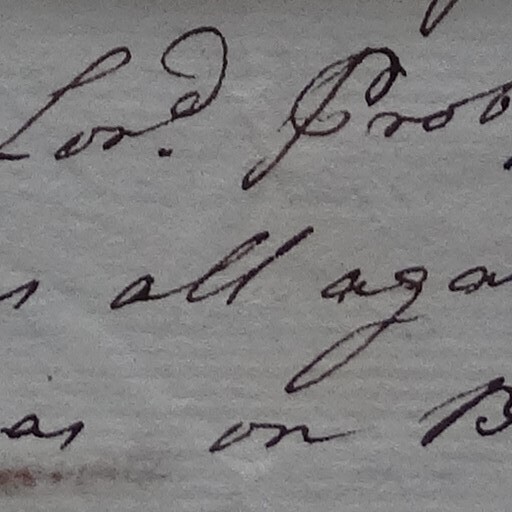 Lord. Prob
s all aga
as on B